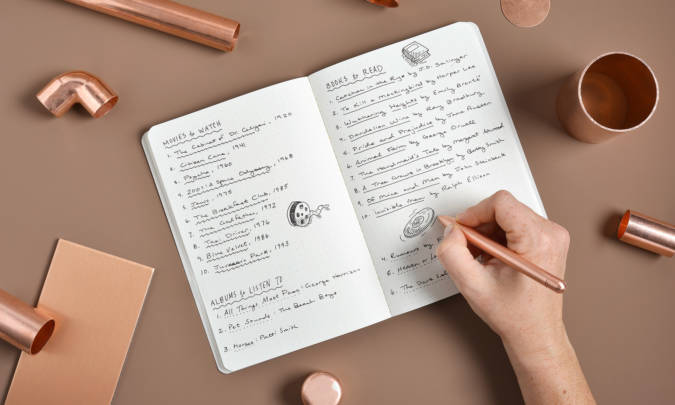 MOVIES to WATCH
1. The Cabinet of Dr. Caligari, 1920
2. Citizen Kane, 1941
3. Psycho, 1960
4. 2001: A Space Odyssey, 1968
5. Jaws, 1975
6. The Breakfast Club, 1985
7. The Godfather, 1972
8. Taxi Driver, 1976
9. Blue Velvet, 1986
10. Jurassic Park, 1993
ALBUMS to LISTEN TO
1. All Things Must Pass: George Harrison
2. Pet Sounds: The Beach Boys
3. Horses: Patti Smith
BOOKS to READ
1. Catcher in the Rye by J.D. Salinger
2. To Kill a Mockingbird by Harper Lee
3. Wuthering Heights by Emily Brontë
4. Dandelion Wine by Ray Bradbury
5. Pride and Prejudice by Jane Austen
6. Animal Farm by George Orwell
7. The Handmaid's Tale by Margaret Atwood
8. A Tree Grows in Brooklyn by Betty Smith
9. Of Mice and Men by John Steinbeck
10. Invisible Man by Ralph Ellison
4. Rumours
5. or
6. The Dark